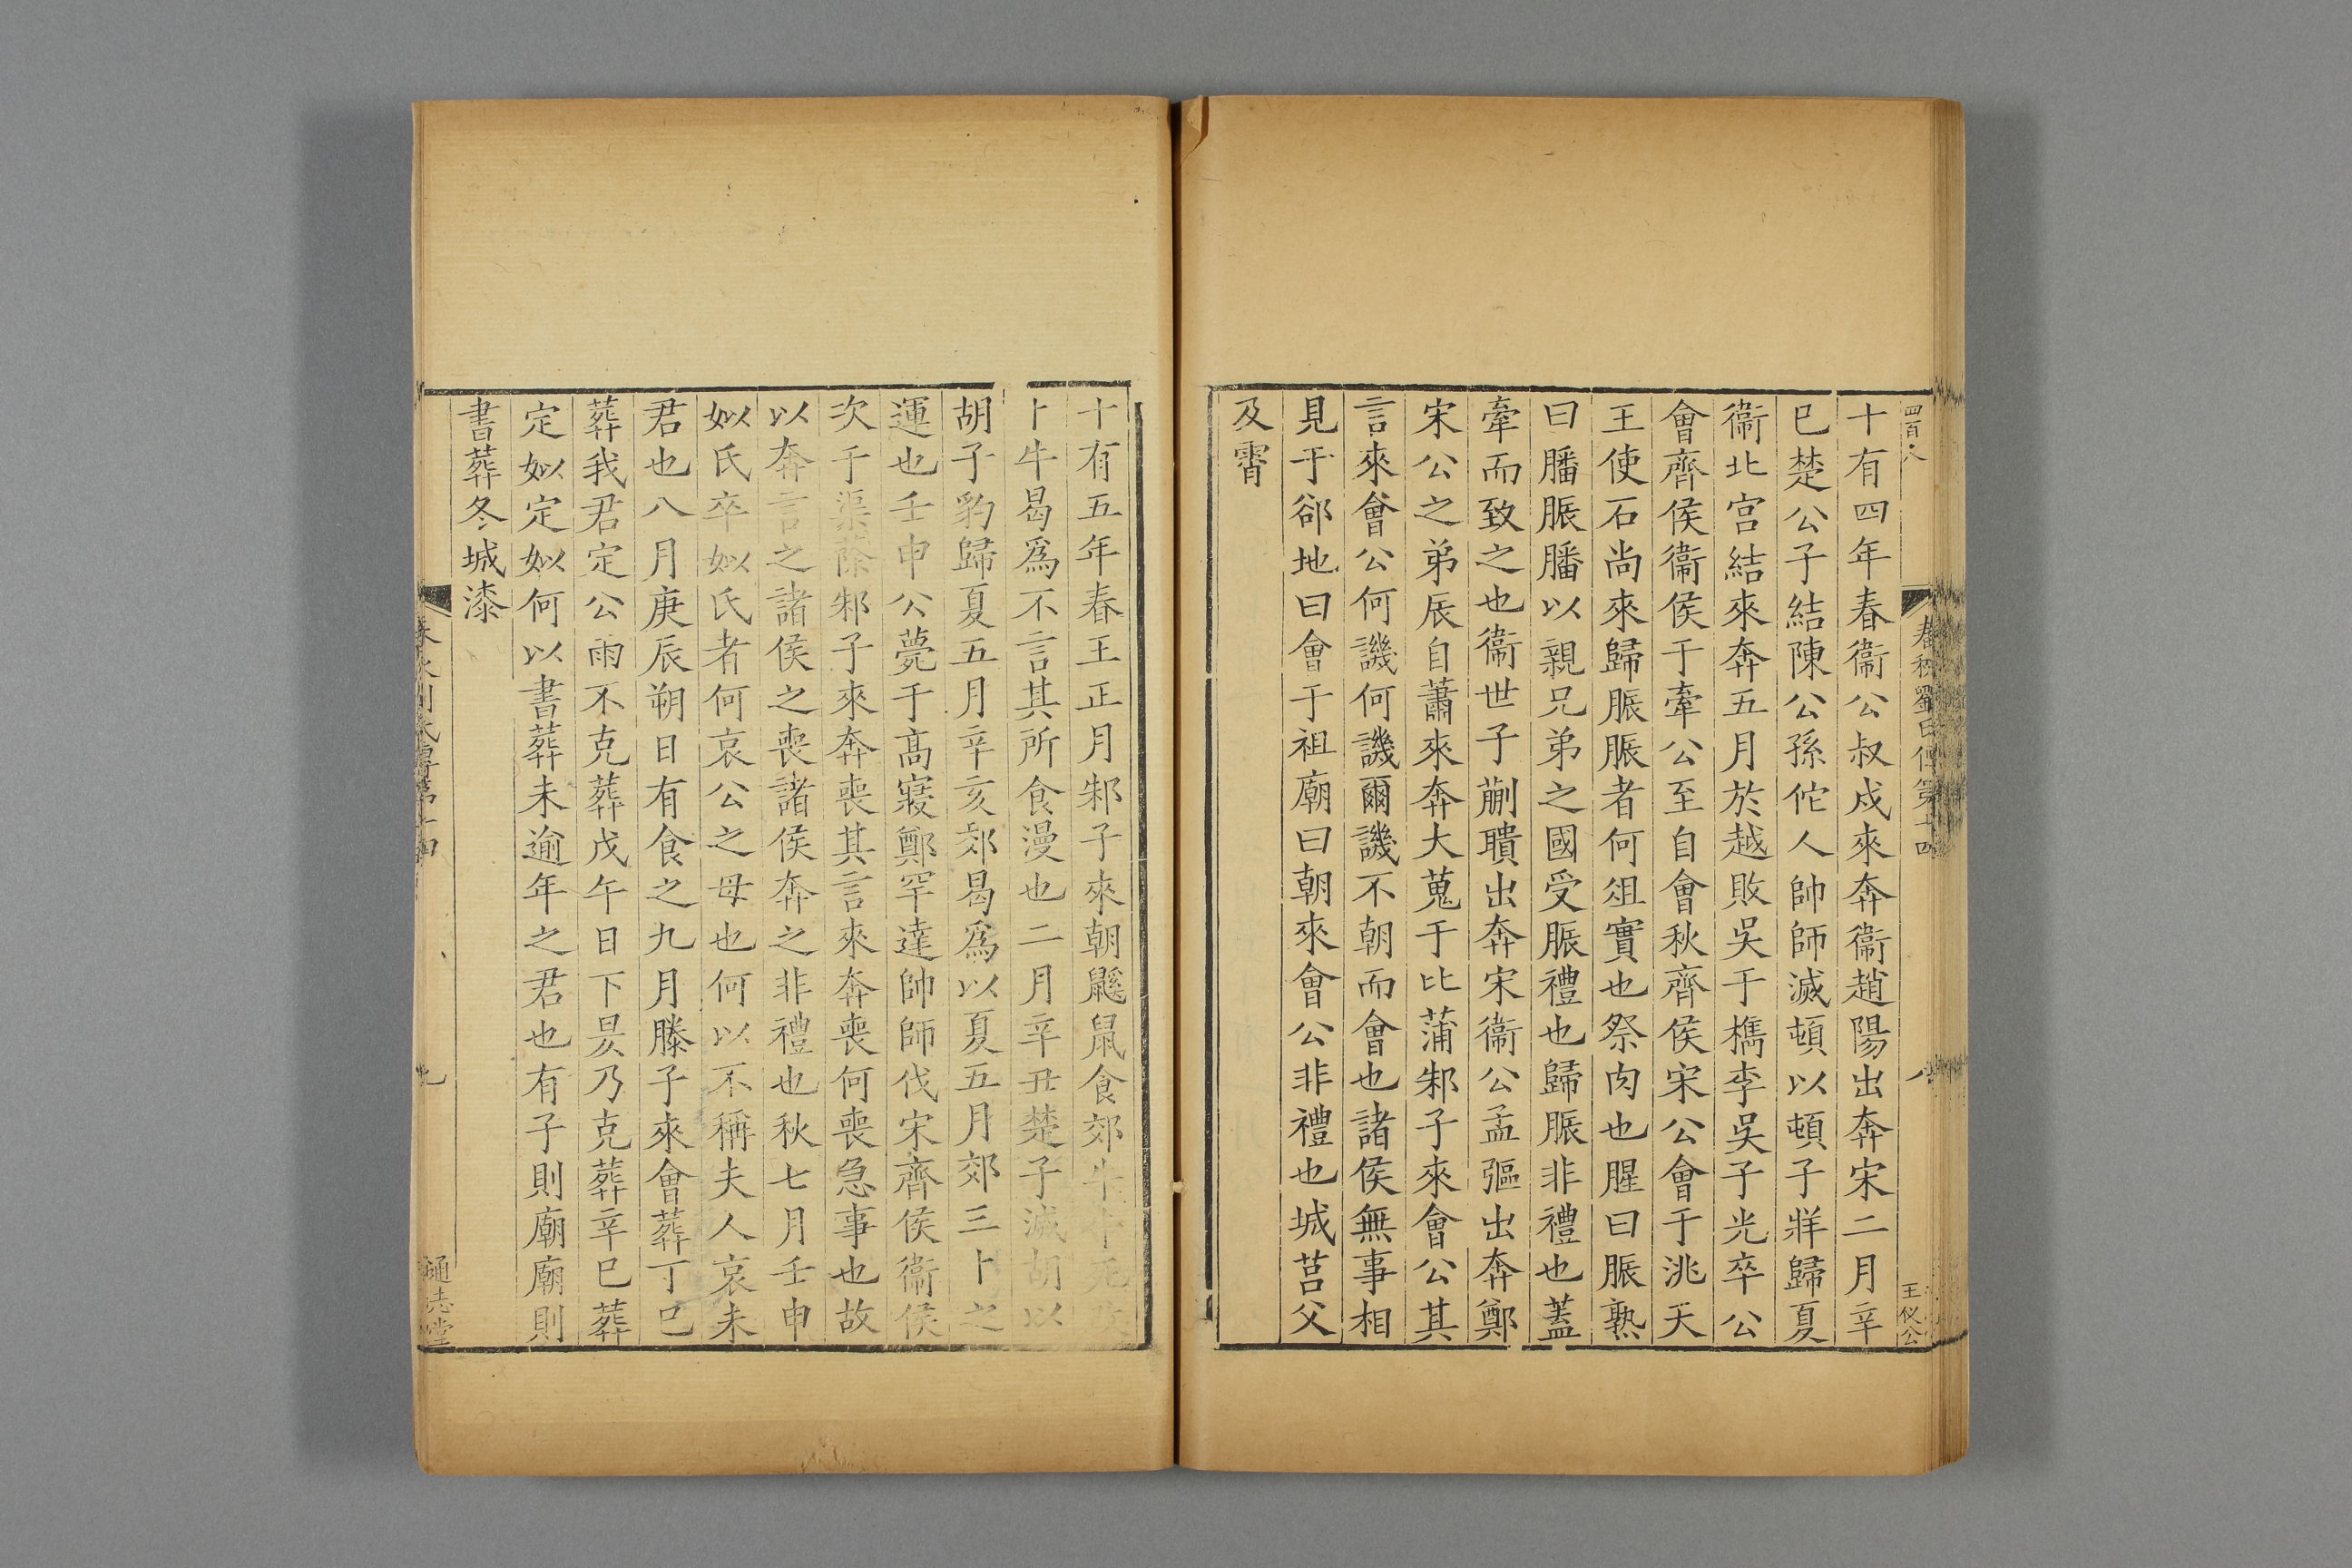 四百八
春秋劉氏傳第十四
八
王仪公
十有四年春衞公叔戍來奔衞趙陽出奔宋二月辛
巳楚公子結陳公孫佗人帥師滅頓以頓子牂歸夏
衞北宫結來奔五月於越敗吳于檇李吳子光卒公
會齊侯衞侯于牽公至自會秋齊侯宋公會于洮天
王使石尚來歸脤脤者何俎實也祭肉也腥曰脤熟
曰膰脤膰以親兄弟之國受脤禮也歸脤非禮也蓋
牽而致之也衞世子蒯聵出奔宋衞公孟彄出奔鄭
宋公之弟辰自蕭來奔大蒐于比蒲邾子來會公其
言來會公何譏何譏爾譏不朝而會也諸侯無事相
見于郤地曰會于祖廟曰朝來會公非禮也城莒父
及霄
十有五年春王正月邾子來朝鼷鼠食郊牛牛死改
卜牛曷爲不言其所食漫也二月辛丑楚子滅胡以
胡子豹歸夏五月辛亥郊曷爲以夏五月郊三卜之
運也壬申公薨于高寢鄭罕達帥師伐宋齊侯衞侯
次于渠蒢邾子來奔喪其言來奔喪何喪急事也故
以奔言之諸侯之喪諸侯奔之非禮也秋七月壬申
姒氏卒姒氏者何哀公之母也何以不稱夫人哀未
君也八月庚辰朔日有食之九月滕子來會葬丁巳
葬我君定公雨不克葬戊午日下昃乃克葬辛巳葬
定姒定姒何以書葬未逾年之君也有子則廟廟則
書葬冬城漆
春秋劉氏傳第十四
九
通志堂